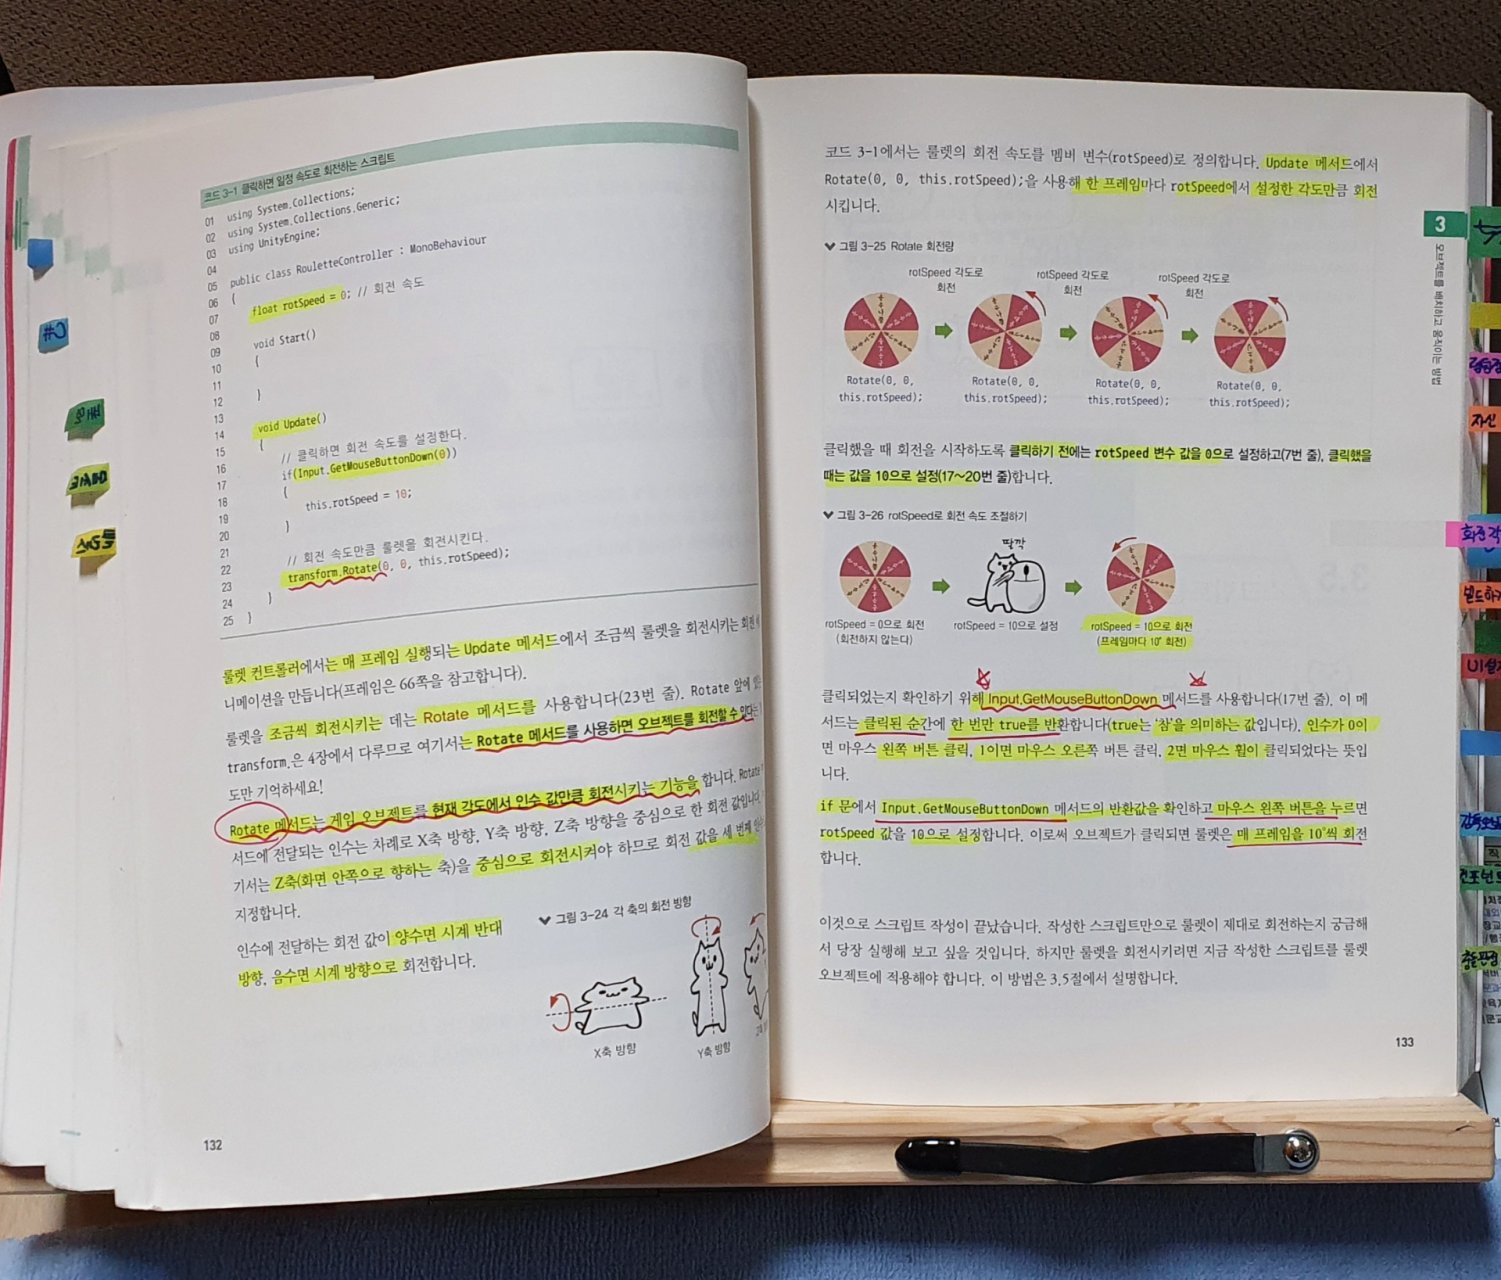 코드 3-1 클릭하면 일정 속도로 회전하는 스크립트
01 using System.Collections;
02 using System.Collections.Generic;
03 using UnityEngine;
04
05 public class RouletteController : MonoBehaviour
06 {
07 float rotSpeed = 0; // 회전 속도
08
09 void Start()
10 {
11
12 }
13
14 void Update()
15 {
16 // 클릭하면 회전 속도를 설정한다.
17 if(Input.GetMouseButtonDown(0))
18 {
19 this.rotSpeed = 10;
20 }
21
22 // 회전 속도만큼 룰렛을 회전시킨다.
23 transform.Rotate(0, 0, this.rotSpeed);
24 }
25 }
룰렛 컨트롤러에서는 매 프레임 실행되는 Update 메서드에서 조금씩 룰렛을 회전시키는 회전
니메이션을 만듭니다(프레임은 66쪽을 참고합니다).
룰렛을 조금씩 회전시키는 데는 Rotate 메서드를 사용합니다(23번 줄). Rotate 앞에
transform.은 4장에서 다루므로 여기서는 Rotate 메서드를 사용하면 오브젝트를 회전할 수 있다는
도만 기억하세요!
Rotate 메서드는 게임 오브젝트를 현재 각도에서 인수 값만큼 회전시키는 기능을 합니다. Rotate
서드에 전달되는 인수는 차례로 X축 방향, Y축 방향, Z축 방향을 중심으로 한 회전 값입니다.
기서는 Z축(화면 안쪽으로 향하는 축)을 중심으로 회전시켜야 하므로 회전 값을 세 번째
지정합니다.
인수에 전달하는 회전 값이 양수면 시계 반대
방향, 음수면 시계 방향으로 회전합니다.
그림 3-24 각 축의 회전 방향
X축 방향
Y축 방향
132
코드 3-1에서는 룰렛의 회전 속도를 멤버 변수(rotSpeed)로 정의합니다. Update 메서드에서
Rotate(0, 0, this.rotSpeed);을 사용해 한 프레임마다 rotSpeed에서 설정한 각도만큼 회전
시킵니다.
그림 3-25 Rotate 회전량
rotSpeed 각도로 rotSpeed 각도로 rotSpeed 각도로
회전 회전 회전
Rotate(0, 0, Rotate(0, 0, Rotate(0, 0, Rotate(0, 0,
this.rotSpeed); this.rotSpeed); this.rotSpeed); this.rotSpeed);
클릭했을 때 회전을 시작하도록 클릭하기 전에는 rotSpeed 변수 값을 0으로 설정하고(7번 줄), 클릭했을
때는 값을 10으로 설정(17~20번 줄)합니다.
그림 3-26 rotSpeed로 회전 속도 조절하기
딸깍
rotSpeed = 0으로 회전 rotSpeed = 10으로 설정 rotSpeed = 10으로 회전
(회전하지 않는다) (프레임마다 10° 회전)
클릭되었는지 확인하기 위해 Input.GetMouseButtonDown 메서드를 사용합니다(17번 줄). 이 메
서드는 클릭된 순간에 한 번만 true를 반환합니다(true는 '참'을 의미하는 값입니다). 인수가 0이
면 마우스 왼쪽 버튼 클릭, 1이면 마우스 오른쪽 버튼 클릭, 2면 마우스 휠이 클릭되었다는 뜻입
니다.
if 문에서 Input.GetMouseButtonDown 메서드의 반환값을 확인하고 마우스 왼쪽 버튼을 누르면
rotSpeed 값을 10으로 설정합니다. 이로써 오브젝트가 클릭되면 룰렛은 매 프레임을 10°씩 회전
합니다.
이것으로 스크립트 작성이 끝났습니다. 작성한 스크립트만으로 룰렛이 제대로 회전하는지 궁금해
서 당장 실행해 보고 싶을 것입니다. 하지만 룰렛을 회전시키려면 지금 작성한 스크립트를 룰렛
오브젝트에 적용해야 합니다. 이 방법은 3.5절에서 설명합니다.
133
3
오브젝트를 배치하고 움직이는 방법
자신
회전각